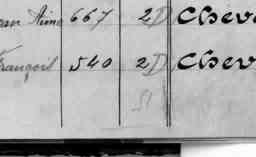 Aimé 667 2D Chev
François 540 2D Chev